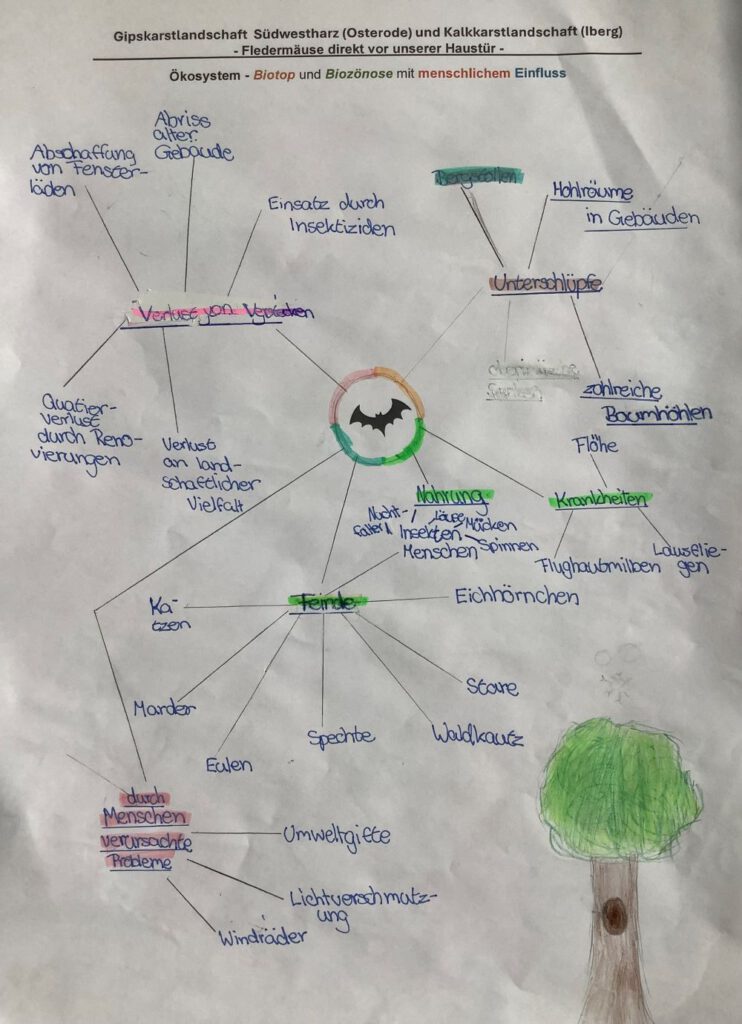 Gipskarstlandschaft Südwestharz (Osterode) und Kalkkarstlandschaft (Iberg)
- Fledermäuse direkt vor unserer Haustür -
Ökosystem - Biotop und Biozönose mit menschlichem Einfluss
Abschaffung
von Fenster-
läden
Abriss
alter
Gebäude
Einsatz durch
Insektiziden
Verlust von
Quatier-
verlust
durch Reno-
vierungen
Verlust
an land-
schaftlicher
Vielfalt
Bergstollen
Hohlräume
in Gebäuden
Unterschlüpfe
zahlreiche
Baumhöhlen
Flöhe
Krankheiten
Flughautmilben
Lausflie-
gen
Nahrung
Nacht-
falter
Läuse
Mücken
Insekten
Spinnen
Menschen
Feinde
Ka-
tzen
Eichhörnchen
Marder
Eulen
Spechte
Waldkautz
Stare
durch
Menschen
verursachte
Probleme
Umweltgifte
Lichtverschmutz-
ung
Windräder